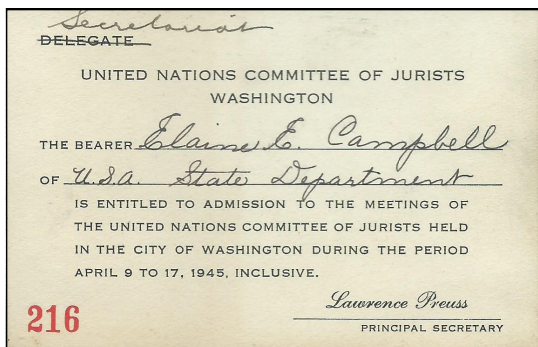 Secretariat
DELEGATE
UNITED NATIONS COMMITTEE OF JURISTS
WASHINGTON
THE BEARER Elaine E. Campbell
OF U.S.A. State Department
IS ENTITLED TO ADMISSION TO THE MEETINGS OF
THE UNITED NATIONS COMMITTEE OF JURISTS HELD
IN THE CITY OF WASHINGTON DURING THE PERIOD
APRIL 9 TO 17, 1945, INCLUSIVE.
Lawrence Preuss
216
PRINCIPAL SECRETARY